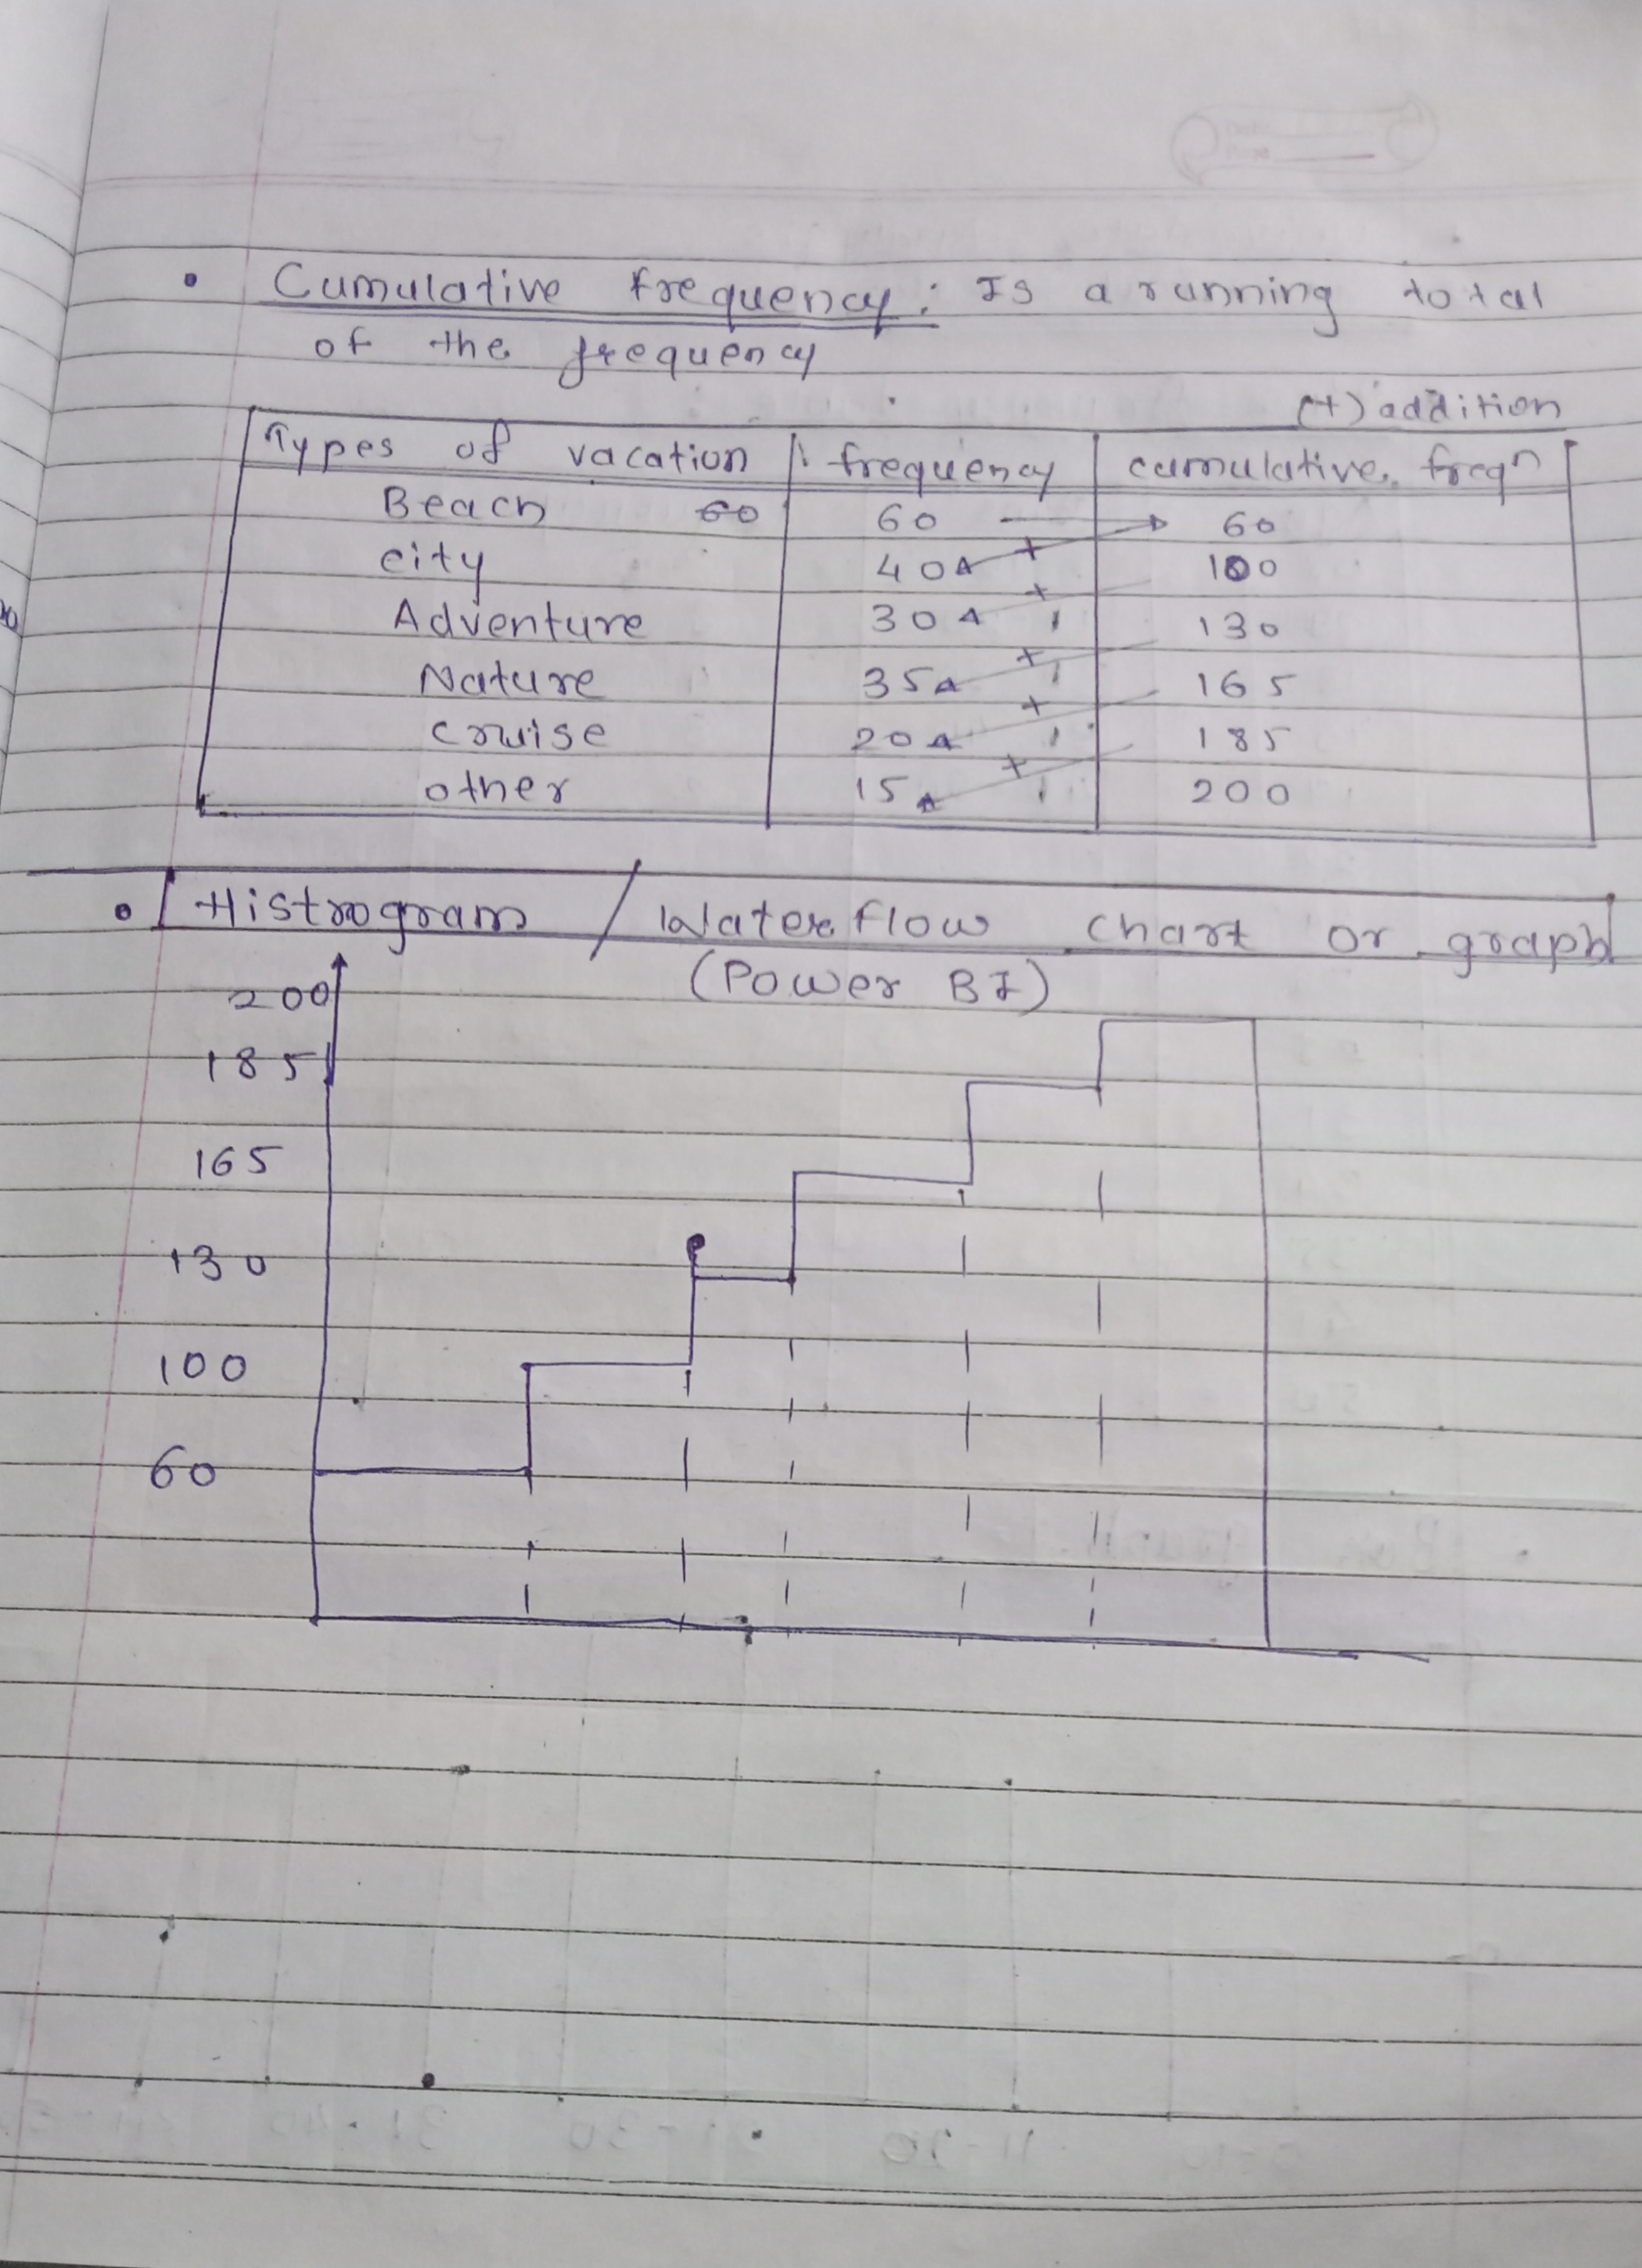 • Cumulative frequency: Is a running total
of the frequency
(+) addition
Types of vacation frequency cumulative freqn
Beach 60 60 60
city 40 + 100
Adventure 30 + 130
Nature 35 + 165
cruise 20 + 185
other 15 + 200
• Histrogram / Waterflow chart or graph
(Power BI)
200
185
165
130
100
60